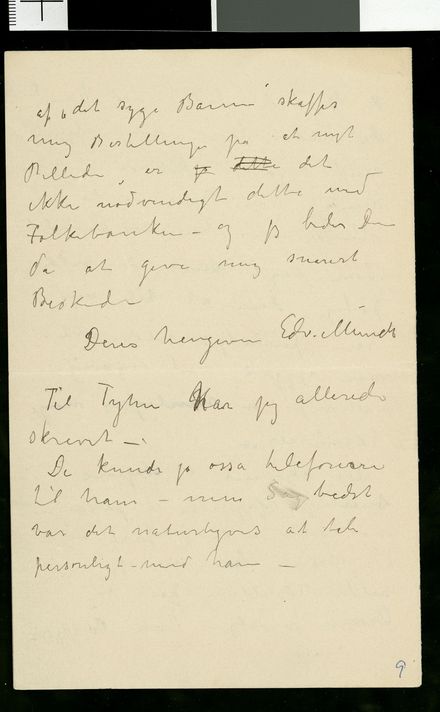 af „det syge Barn" skaffes
mig Bestillinge på et nyt
Billede er det
ikke nødvendigt dette med
Folkebanken – og beder Dem
da at give mig snarest
Beskeden
Deres hengivne Edv. Munch
Til har jeg allerede
skrevet –
De kunde jo også telefonere
til ham – men bedst
var det naturligvis at tale
personligt med ham –
9